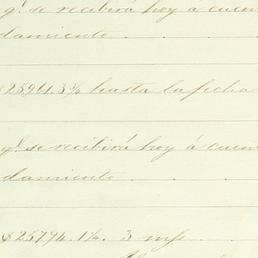 qe. se recibirá hoy á cuen
damiento
$25941.3½ hasta la fecha
qe. se recibirá hoy á cuen
damiento
$25794.1½. 3 mp